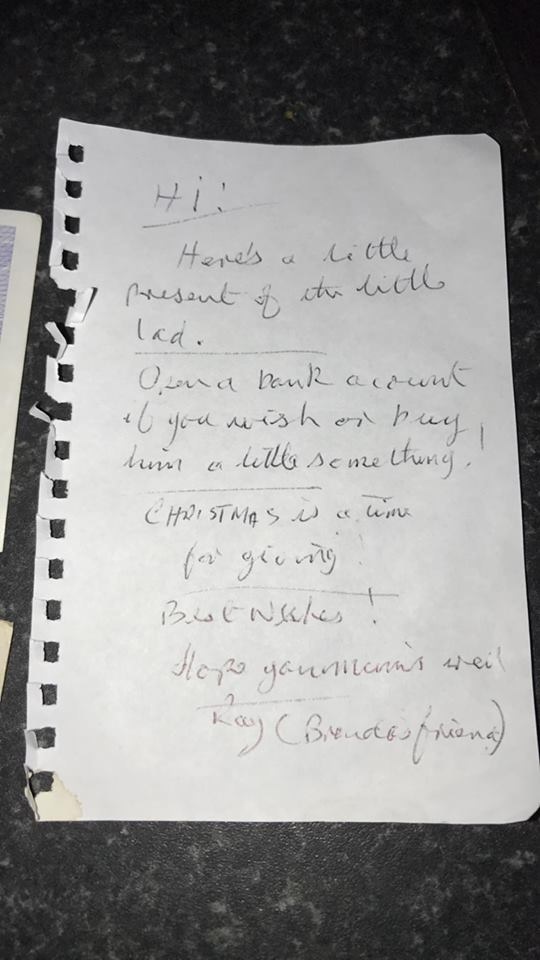 Hi!
Here's a little
present of the little
lad.
Open a bank account
if you wish or buy
him a little something!
CHRISTMAS is a time
for giving!
Best Wishes!
Hope your Mam's well
Ray (Brenda's friend)